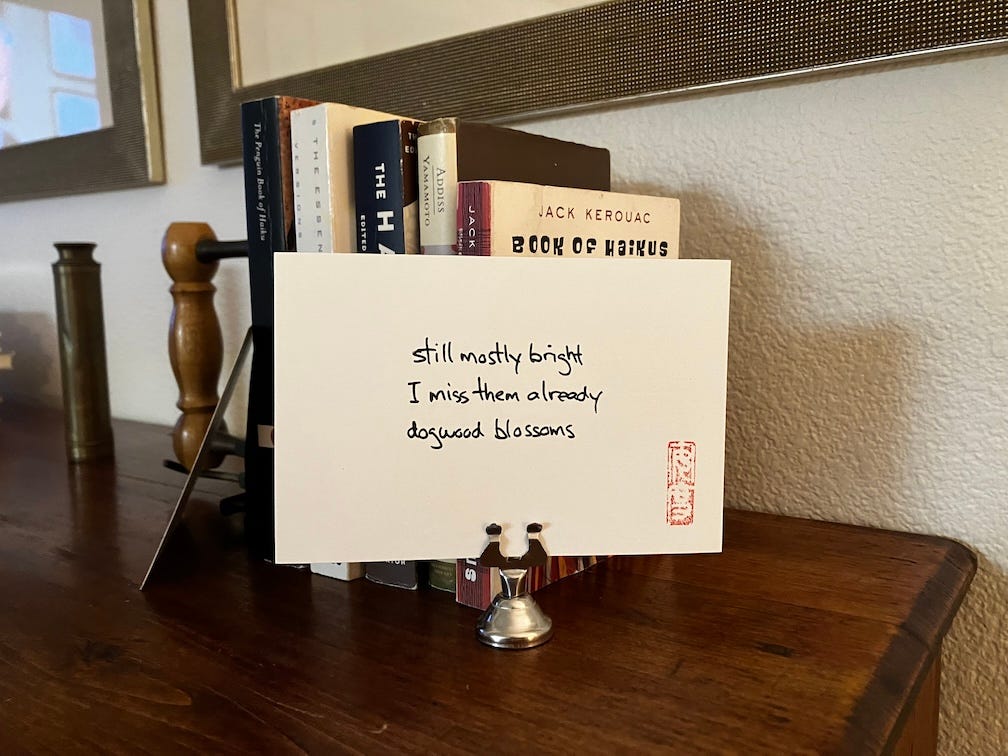 The Penguin Book of Haiku
THE ESSEN
VERSIONS
THE HA
EDITED
ADDISS
YAMAMOTO
JACK
JACK KEROUAC
BOOK OF HAIKUS
still mostly bright
I miss them already
dogwood blossoms